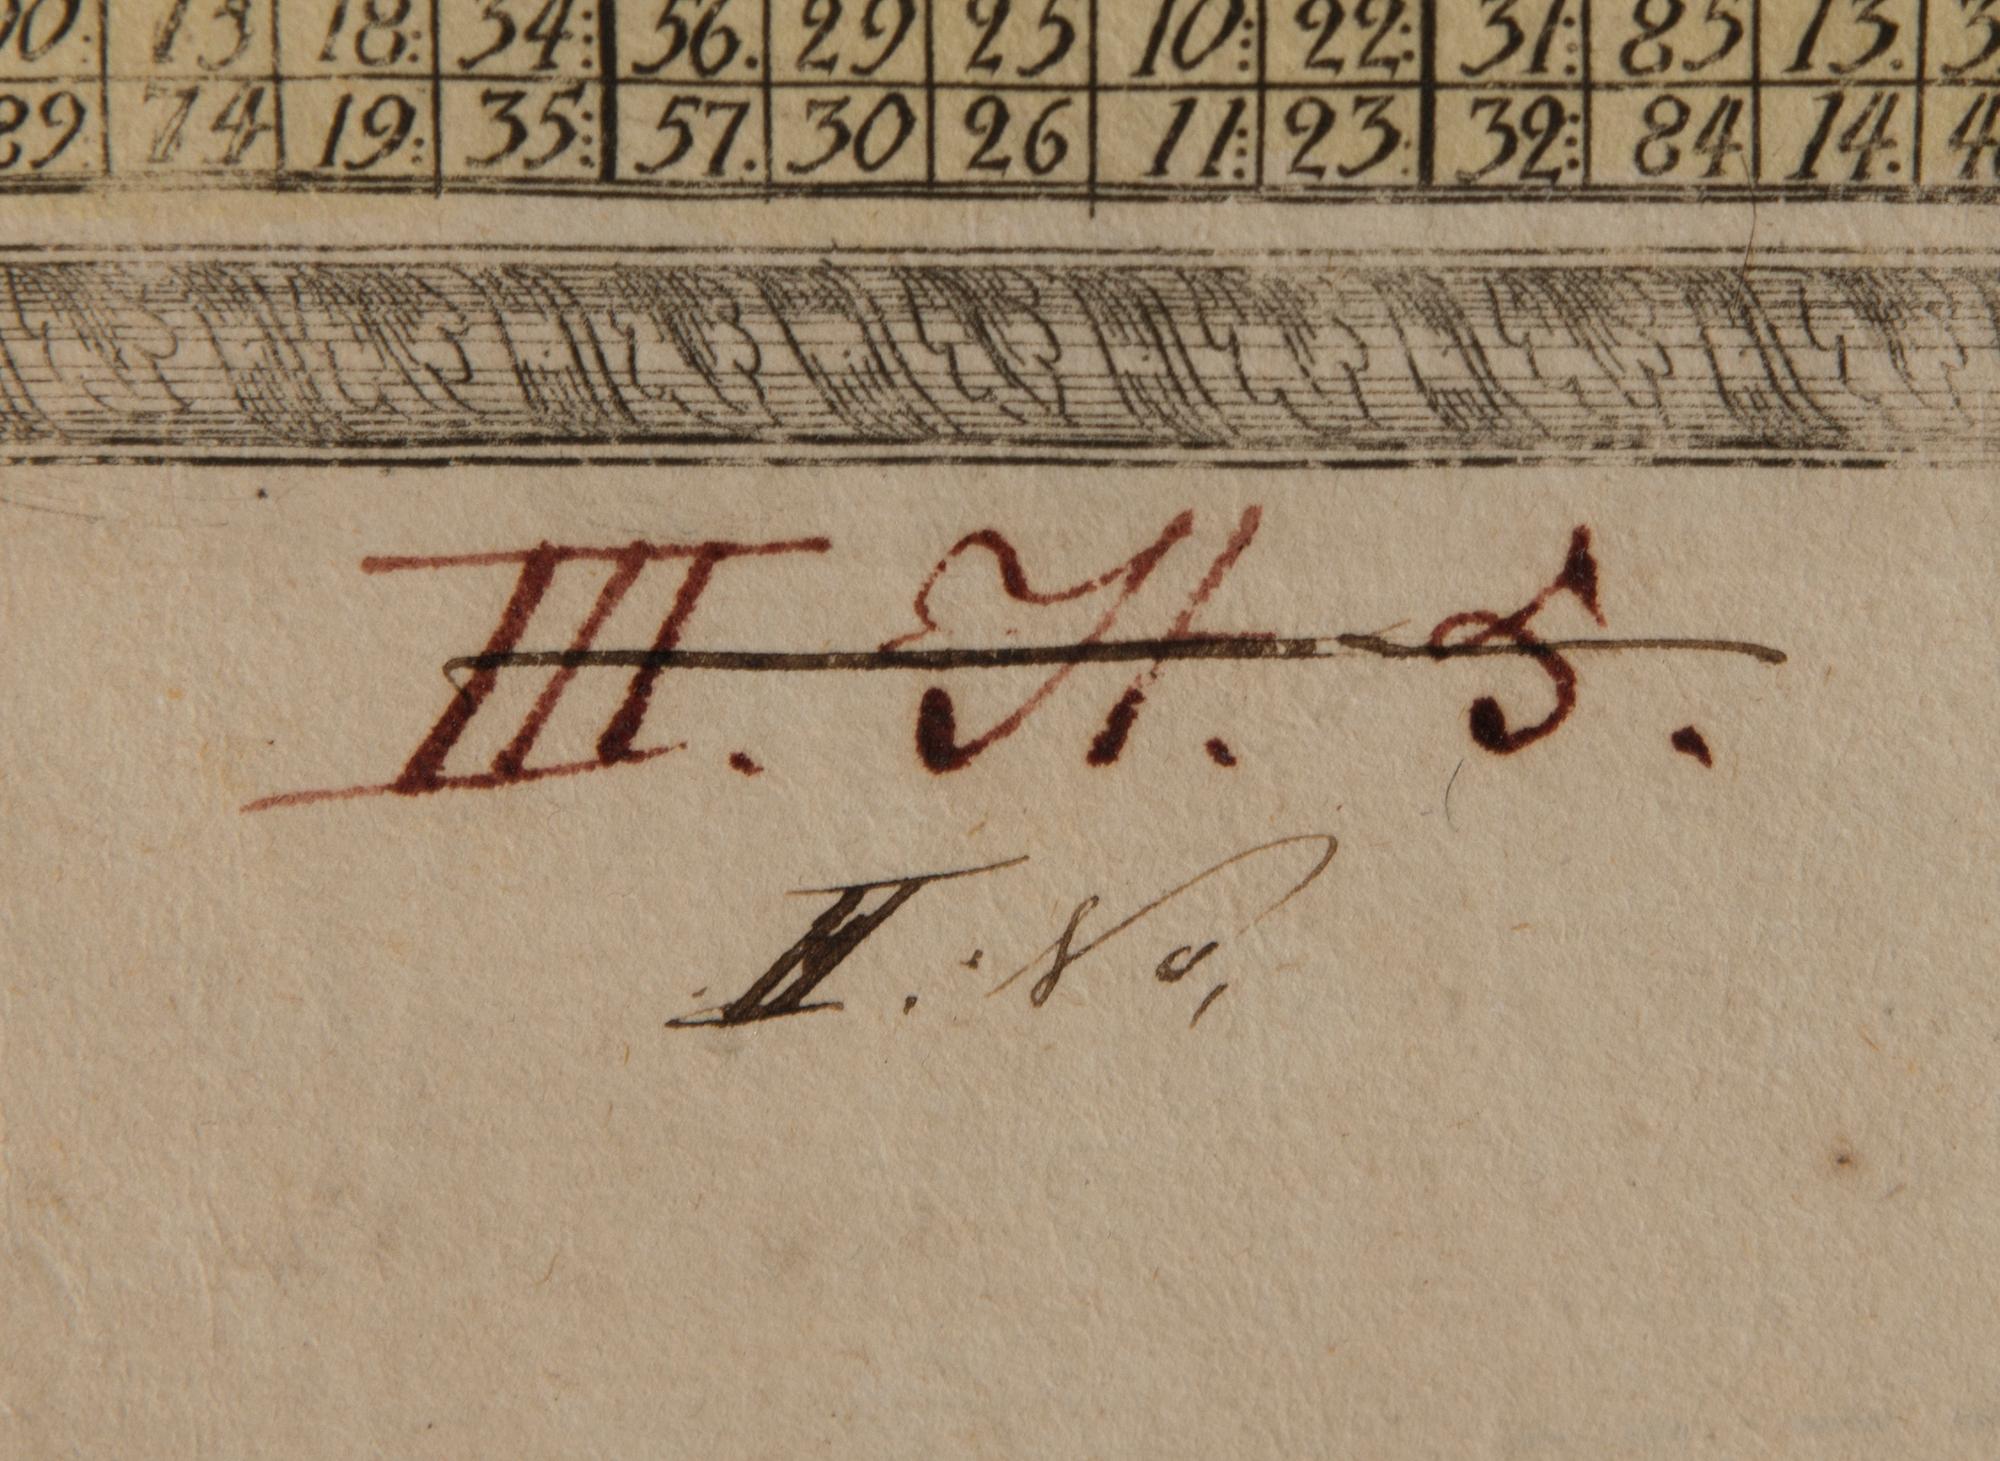 13 18: 34: 56. 29 25 10: 22: 31: 85 13.
89. 74 19: 35: 57. 30 26 11: 23: 32: 84 14.
III. H. S.
II.